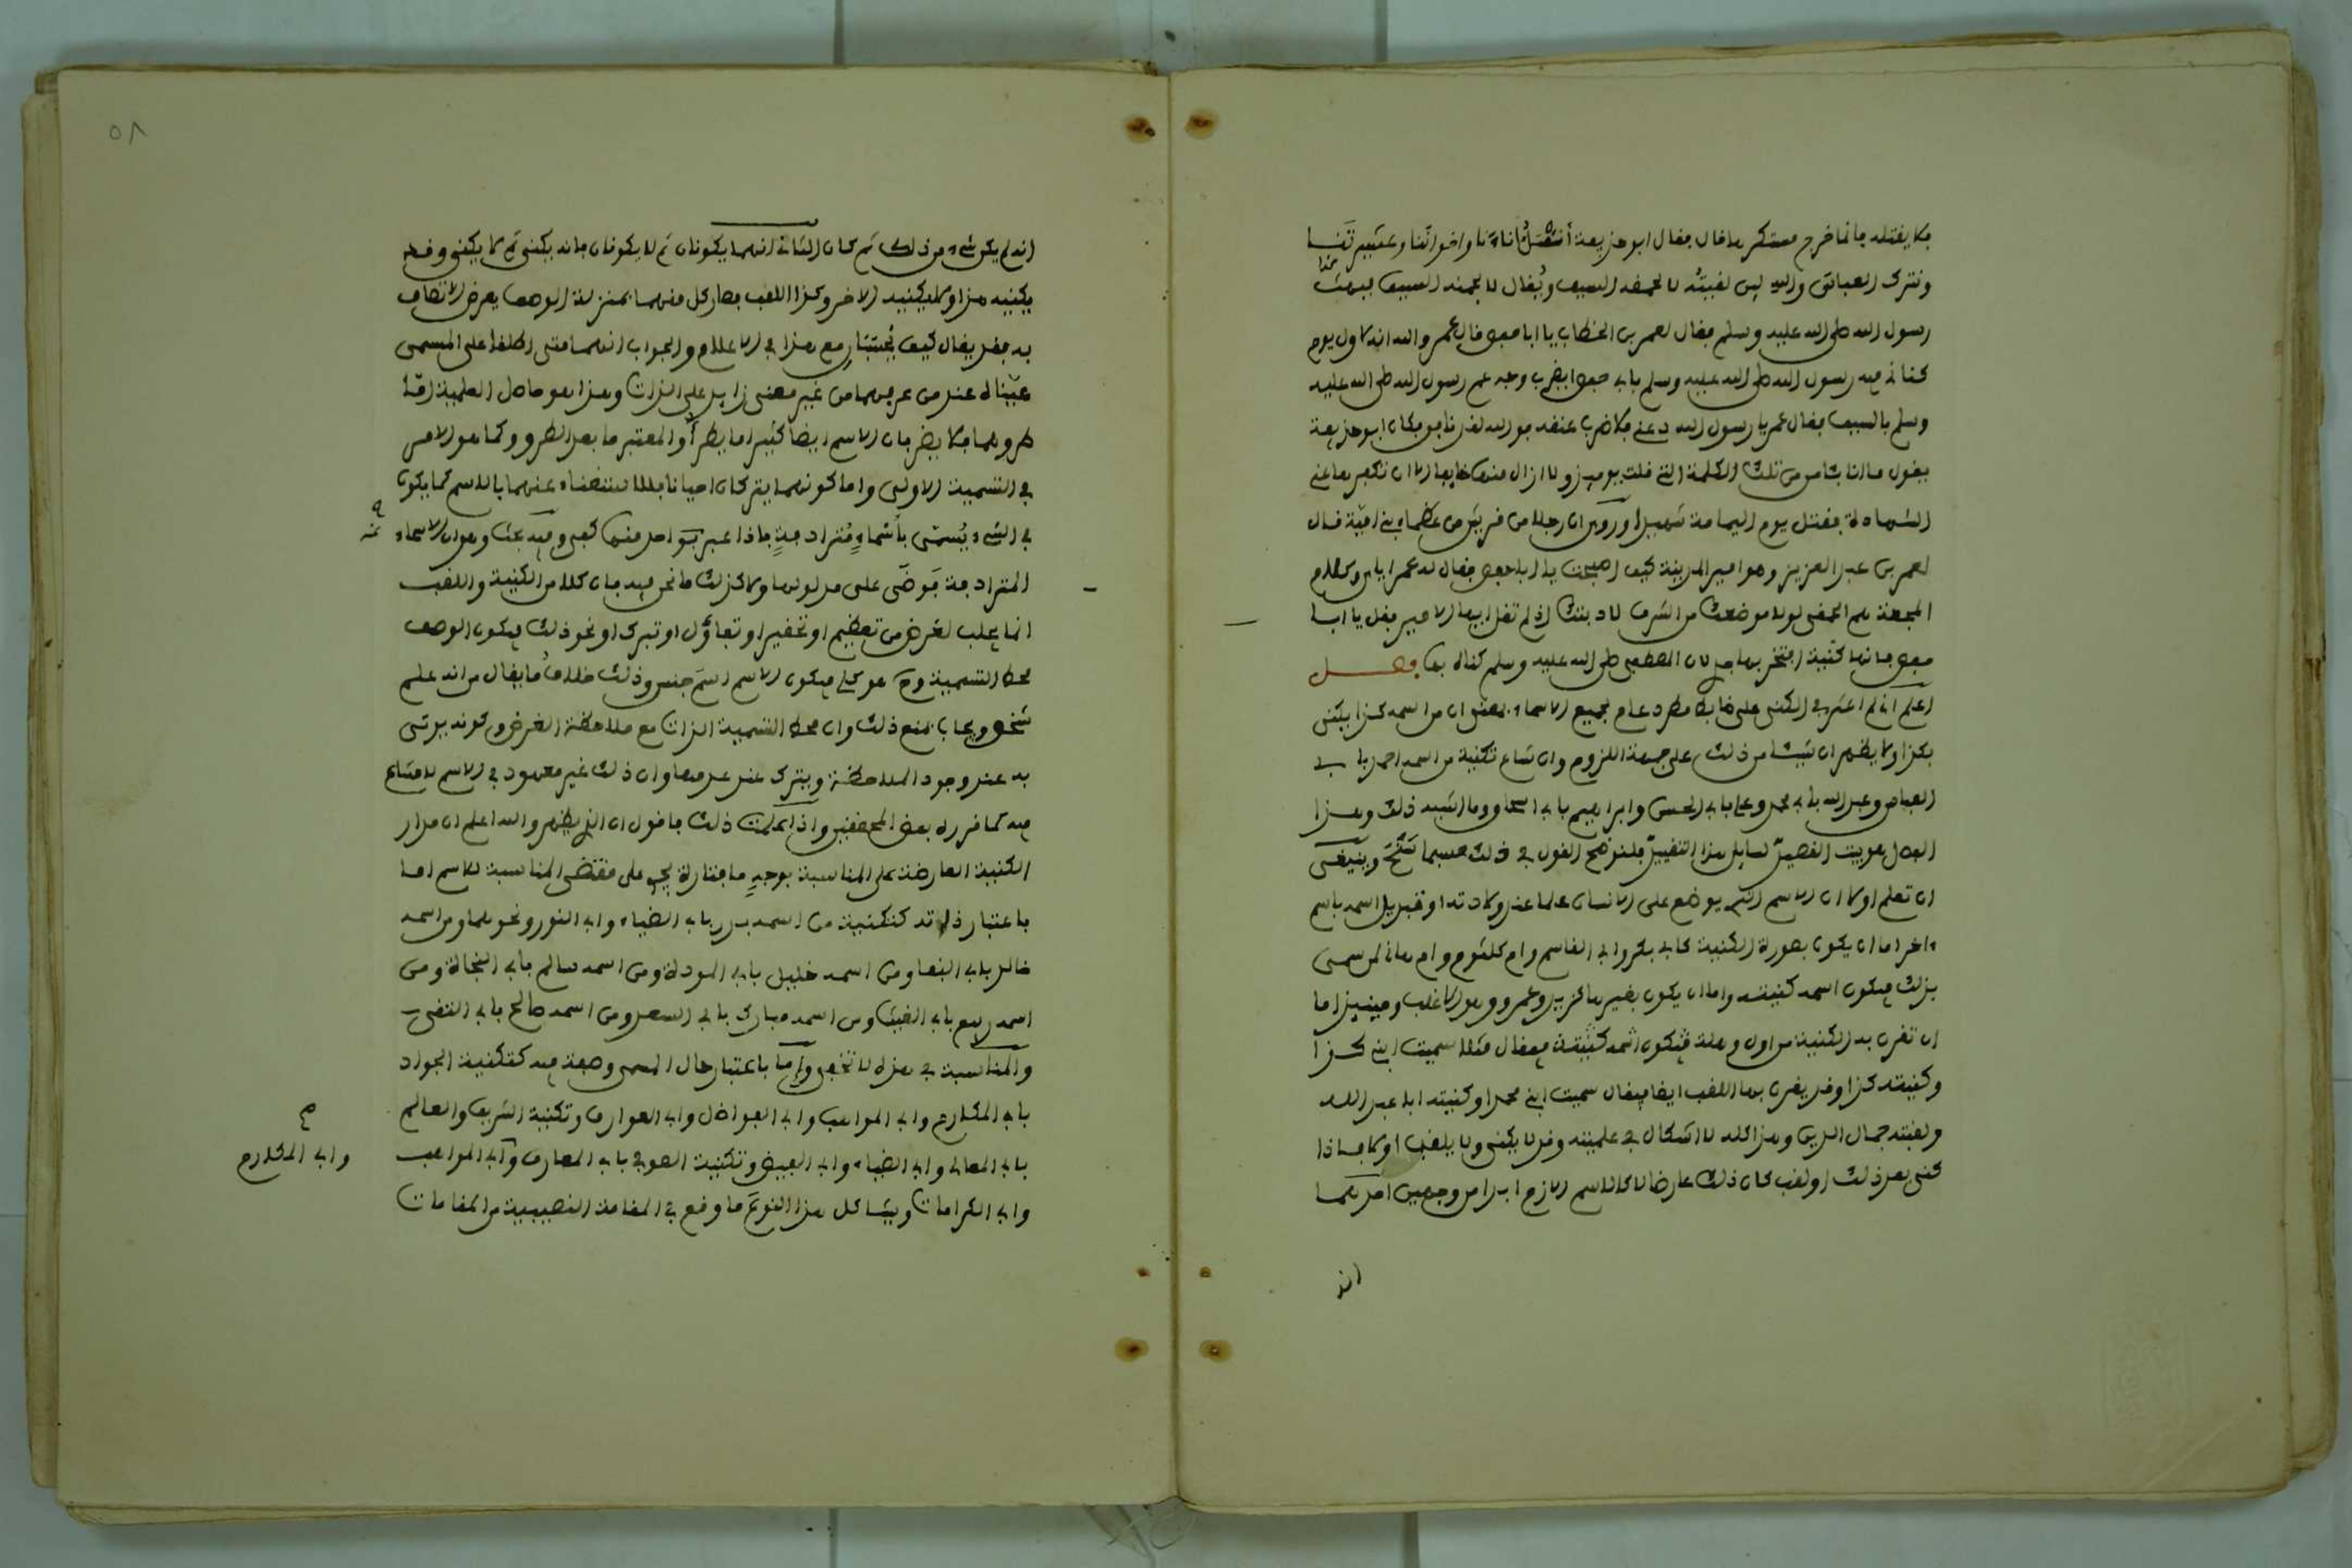 فلا يقتله فإنما خرج مستكرها قال فقال ابو حذيفة أنقتل اباءنا واخواننا وعشيرتنا
ونترك العباس والله لين لقيته لالحمنه السيف ويقال لالجمنه السيف فبلغت
رسول الله صلى الله عليه وسلم فقال لعمر بن الخطاب يا ابا حفص قال عمر والله انه لاول يوم
كناني فيه رسول الله صلى الله عليه وسلم بابي حفص ايضرب وجه عم رسول الله صلى الله عليه
وسلم بالسيف فقال عمر يا رسول الله دعني فلاضرب عنقه فوالله لقد نافق فكان ابو حذيفة
يقول ما انا بئامن من تلك الكلمة التي قلت يوميذ ولا ازال منها خايفا الا ان تكفرها عني
الشهادة فقتل يوم اليمامة شهيدا وروي ان رجلا من قريش من عظماء بني امية قال
لعمر بن عبد العزيز وهو امير المدينة كيف اصبحت يا ابا حفص فقال له عمر اياس وكلام
المجعة يلم الحمقى لولا موضعك من الشرف لادبتك اذ لم تقل ايها الامير فقل يا ابا
حفص فانها كنية افتخر بها فيه لان المصطفى صلى الله عليه وسلم كناه بها فصل
اعلم اني لم اعثر في الكنى على ضابط مطرد عام لجميع الاسماء بمعنى ان من اسمه كذا يكنى
بكذا ولا يظهر ان شيئا من ذلك على جهة اللزوم وان شاع تكنية من اسمه احمد بابي
العباس وعبد الله بابي محمد وعلي بابي الحسن وابراهيم بابي اسحاق وما اشبه ذلك وهذا
الفصل هو بيت القصيد لسايل هذا التقييد فلنوضح القول في ذلك حسبما سنح وينبغي
ان تعلم اولا ان الاسم الذي يوضع على الانسان علما عند ولادته او تبديل اسمه باسم
ءاخر اما ان يكون بصورة الكنية كابي بكر وابي القاسم وام كلثوم وام هاني لمن سمي
بذلك فيكون اسمه كنيته واما ان يكون بغيرها كزيد وعمرو وهو الاغلب وحينيذ اما
ان تقرن به الكنية من اول وهلة فيكون اسمه كنيته فيقال مثلا سميت ابني كذا
وكنيته كذا وقد يقرن بها اللقب ايضا فيقال سميت ابني محمدا وكنيته ابا عبد الله
ولقبته جمال الدين وهذا كله لا اشكال في علميته وقد لا يكنى ولا يلقب اولا فاذا
كني بعد ذلك او لقب كان ذلك عارضا لا كالاسم الازم ابدا من وجهين احدهما
انه
٥٨
انه لم يكن شيء من ذلك ثم كان الثاني انهما يكونان ثم لا يكونان فانه يكنى ثم لا يكنى وقد
يكنيه هذا ولا يكنيه الاخر وكذا اللقب فصار كل منهما بمنزلة الوصف يعرض الاتصاف
به فقد يقال كيف يعتبار مع هذا في الاعلام والجواب انهما متى اطلقا على المسمى
عيناه عند من عرفهما من غير معنى زايد على الذات وهذا هو حاصل العلمية اما
طروهما فلا يضر فان الاسم ايضا كثيرا ما يطرأ والمعتبر ما بعد الطرو وكما هو الامر
في التسمية الاولى واما كونهما يتركان احيانا فللاستغناء عنهما بالاسم كما يكون
في الشيء يسمى بأسماء مترادفة فاذا عبر بواحد منها كفى وفيه بحث وهو ان الاسماء
المترادفة فوضى على مدلولها ولا كذلك ما نحن فيه فان كلا من الكنية واللقب
انما يجلب لغرض من تعظيم او تحقير او تفاؤل او تبرك او نحو ذلك فيكون الوصف
محط التسمية وح هو كلي فيكون الاسم اسم جنس وذلك خلاف ما يقال من انه علم
شخص ويجاب بمنع ذلك وان محط التسمية الذات مع ملاحظة الغرض وكونه يوتى
به عند وجود الملاحظة ويترك عند عدمها وان ذلك غير معهود في الاسم لا مشاح
فيه كما قرره بعض المحققين واذا علمت ذلك فاقول ان الذي يظهر والله اعلم ان مدار
الكنية العارضة على المناسبة بوجه ما فتارة يجري على مقتضى المناسبة للاسم اما
باعتبار ذاته كتكنية من اسمه بدر بابي الضياء وابي النور ونحوهما ومن اسمه
خالد بابي البقاء ومن اسمه خليل بابي المودة ومن اسمه سالم بابي النجاة ومن
اسمه ربيع بابي الغيث ومن اسمه مبارك بابي السعد ومن اسمه صالح بابي التقى
والمناسبة في هذه لا تخفى واما باعتبار حال المسمى وصفة فيه كتكنية الجواد
بابي المكارم وابي المواهب وابي الفواضل وابي العوارف وتكنية الشريف والعالم
بابي المعالي وابي الضياء وابي الفيض وتكنية الصوفي بابي المعارف وابي المواهب
وابي الكرامات ويشاكل هذا النوع ما وقع في المقامة النصيبية من المقامات
وابي المكارم